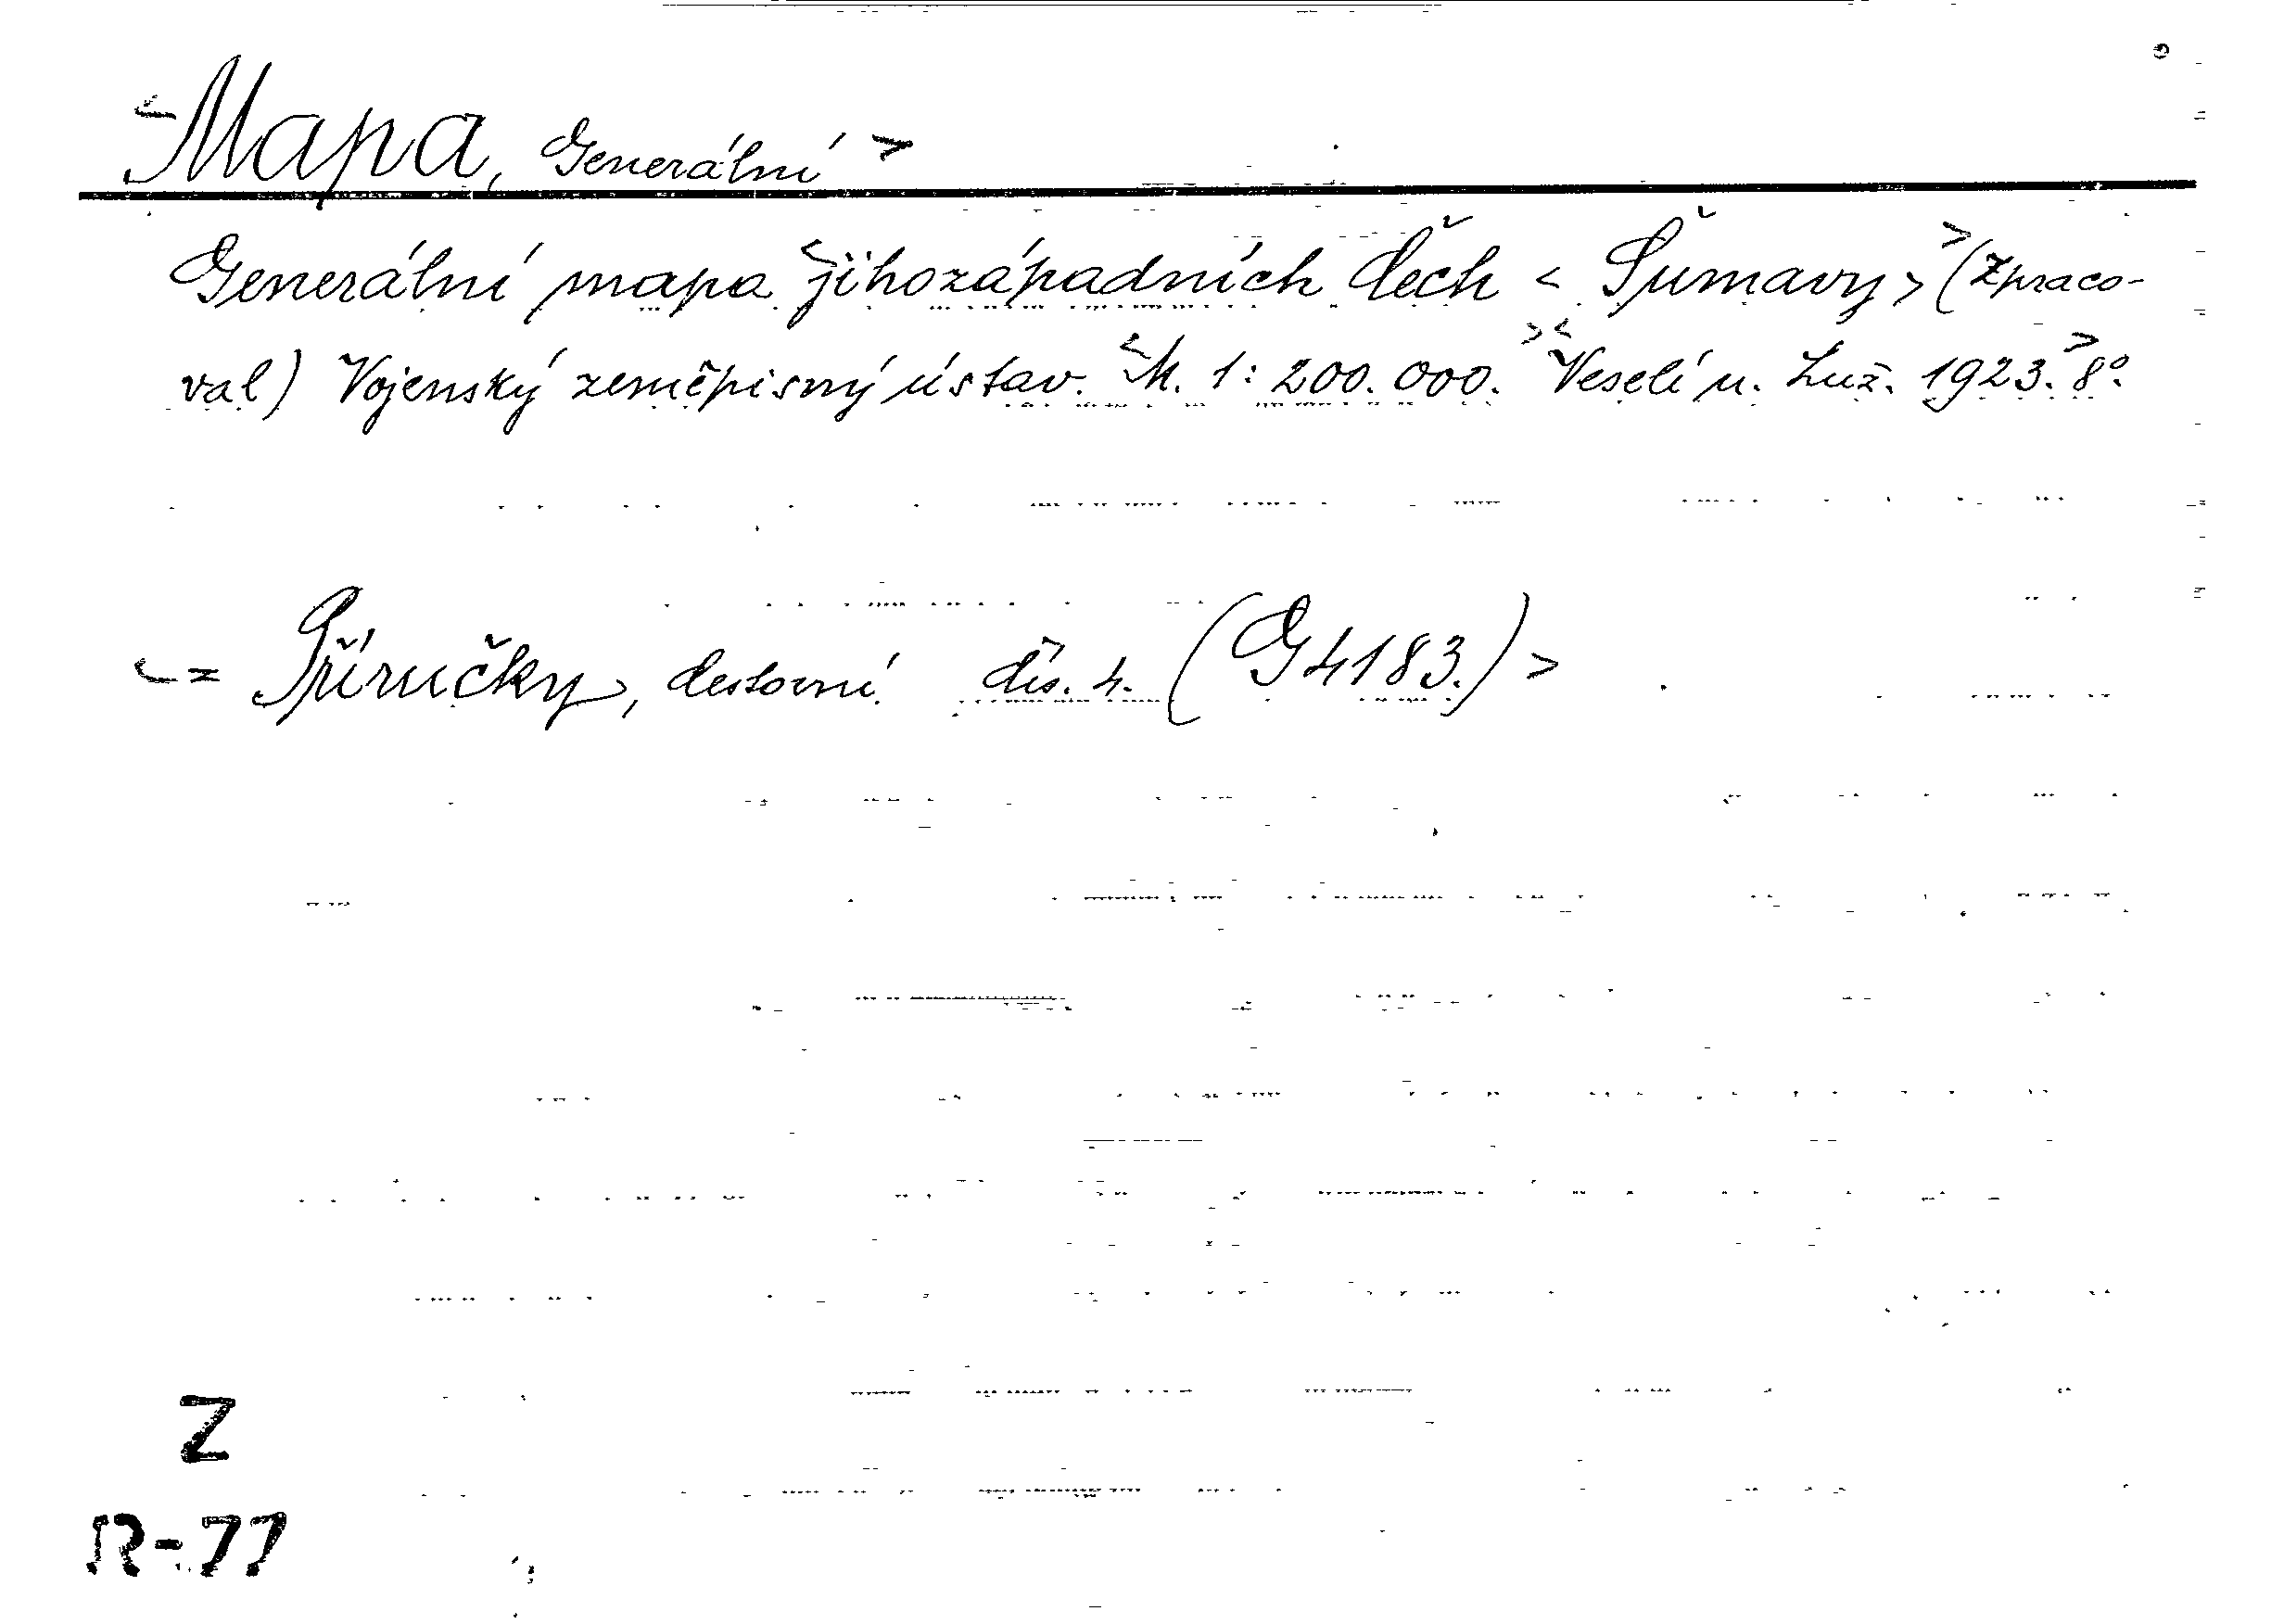 <Mapa, Generální>
Generální mapa <jihozápadních Čech < Šumavy >> (Zpraco-
val) Vojenský zeměpisný ústav. <M. 1: 200.000.> <Veselí n. Luž. 1923.> 8°.
<= Příručky, cestovní čís. 4. (G 4183.)>
Z
R-77